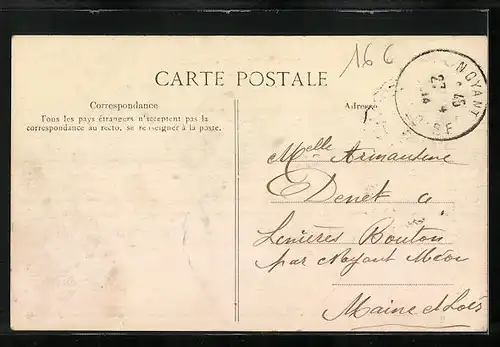 16 C
CARTE POSTALE
Correspondance
Tous les pays étrangers n'acceptent pas la
correspondance au recto, se renseigner à la poste.
Adresse
NOYANT
27 4
14
Melle Armandine
Denet à
Bouton
par Noyant Méon
Maine et Loire